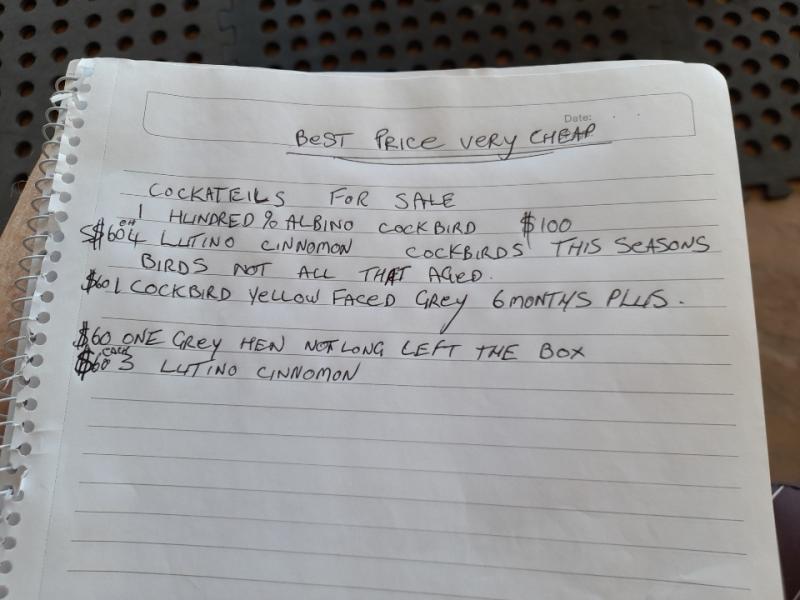 Date:
BEST PRICE VERY CHEAP
COCKATEILS FOR SALE
1 HUNDRED % ALBINO COCKBIRD $100
$60 4 LUTINO CINNOMON COCKBIRDS THIS SEASONS
BIRDS NOT ALL THAT AGED.
$60 1 COCKBIRD YELLOW FACED GREY 6 MONTHS PLUS.
$60 ONE GREY HEN NOT LONG LEFT THE BOX
$60 EACH 3 LUTINO CINNOMON